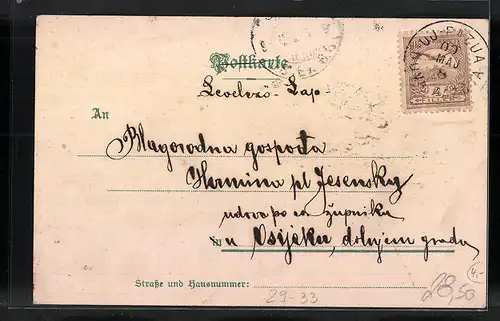 Postkarte
Levelező-Lap
An
Blagorodna gospođa
Hermina pl Jesensky
udova po ca. župnika
in
u Osijeku, dolnjem gradu
Straße und Hausnummer:
29-33
28,50
4,-
MAJ
FILLÉR